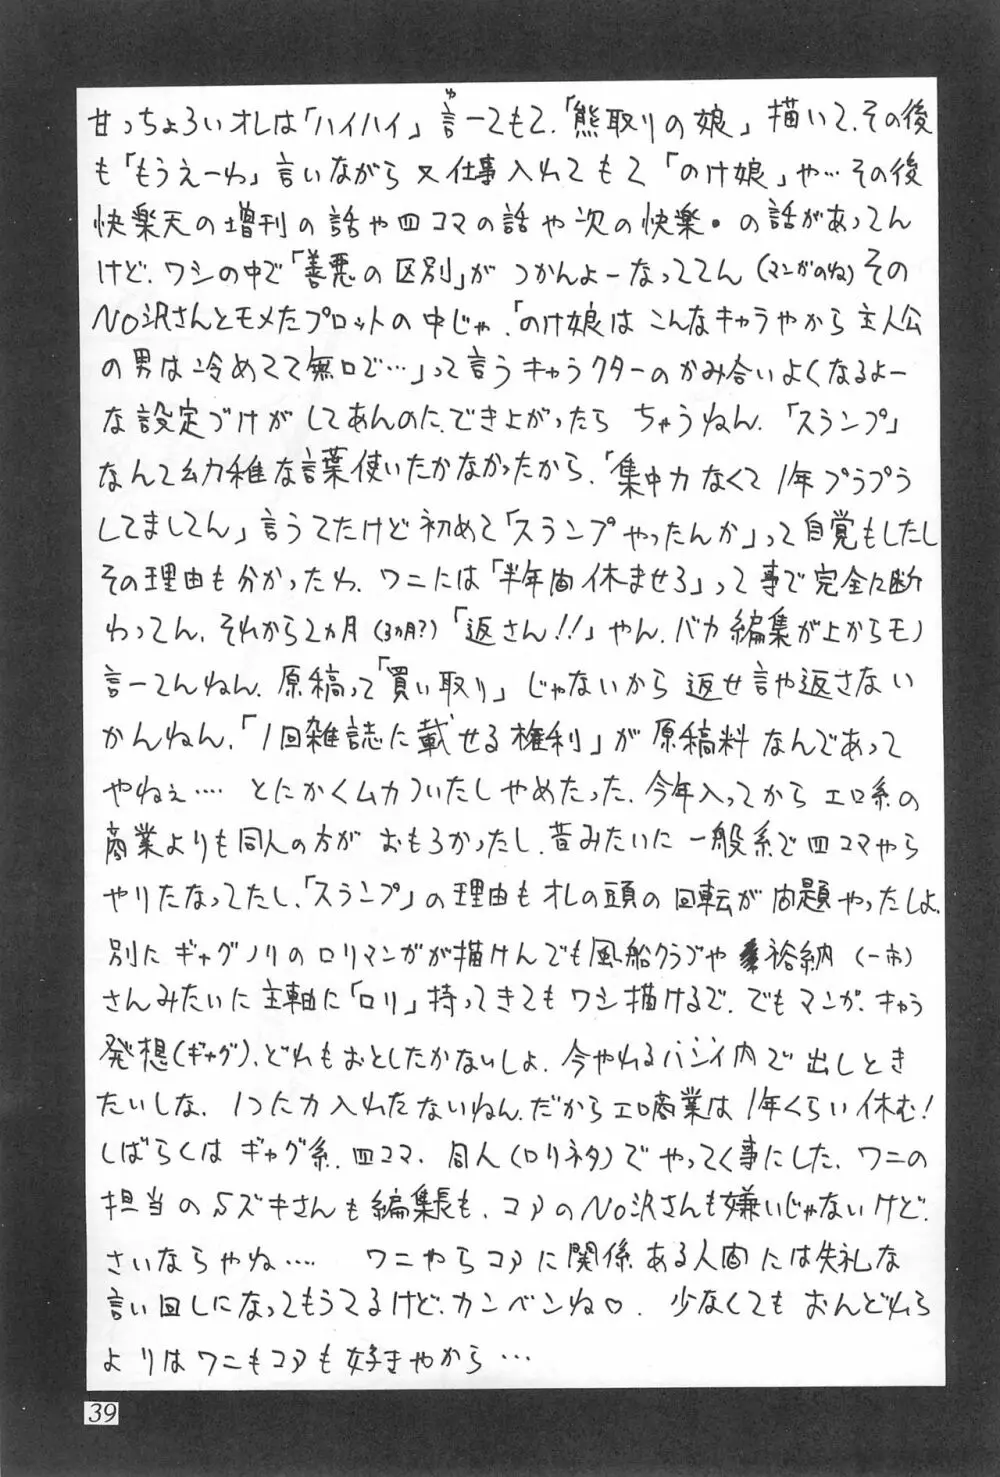 甘っちょろいオレは「ハイハイ」言ーてもて、「熊取りの娘」描いて、その後
も「もうえーわ」言いながら又仕事入れてもて「のけ娘」や…その後
快楽天の増刊の話や四コマの話や次の快楽・の話があってん
けど、ワシの中で「善悪の区別」がつかんよーなっててん(マンガのね)その
NO沢さんとモメたプロットの中じゃ、「のけ娘はこんなキャラやから主人公
の男は冷めてて無口で…」って言うキャラクターのかみ合いよくなるよー
な設定づけがしてあんのに、でき上がったらちゃうねん、「スランプ」
なんて幼稚な言葉使いたかなかったから、「集中力なくて1年プラプラ
してましてん」言うてたけど初めて「スランプやったんか」って自覚もしたし
その理由も分かったわ、ワニには「半年間休ませろ」って事で完全に断
わってん、それから2ヵ月(3ヵ月?)「返さん!!」やん、バカ編集が上からモノ
言ーてんねん、原稿って「買い取り」じゃないから返せ言や返さない
かんねん、「1回雑誌に載せる権利」が原稿料なんであって
やねぇ…. とにかくムカついたしやめたった、今年入ってからエロ系の
商業よりも同人の方がおもろかったし、昔みたいに一般系で四コマやら
やりたなってたし、「スランプ」の理由もオレの頭の回転が問題やったしよ、
別にギャグノリのロリマンガが描けんでも風船クラブや裕納(一市)
さんみたいに主軸に「ロリ」持ってきてもワシ描けるで、でもマンガ、キャラ
発想(ギャグ)、どれもおとしたかないしよ、今やれるハンイ内で出しとき
たいしな、1つに力入れたないねん、だからエロ商業は1年くらい休む!
しばらくはギャグ系、四コマ、同人(ロリネタ)でやってく事にした、ワニの
担当のSズキさんも編集長も、コアのNO沢さんも嫌いじゃないけど、
さいならやね…. ワニやらコアに関係ある人間には失礼な
言い回しになってもうてるけど、カンベンね♡. 少なくてもおんどれら
よりはワニもコアも好きやから…
39